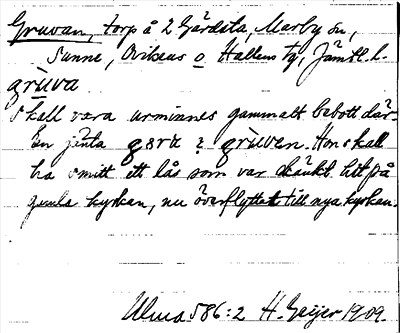 Gruvan, torp å 2 Gärdsta, Marby sn,
Sunne, Ovikens o Hallens tg, Jämtl. l.
grùva
Skall vara urminnes gammalt bebott där.
En jänta gɷra i grùven. Hon skall
ha smitt ett lås som var skänkt hit på
gamla kyrkan, nu överflyttat till nya kyrkan.
ULMA 586:2 H. Geijer 1909.